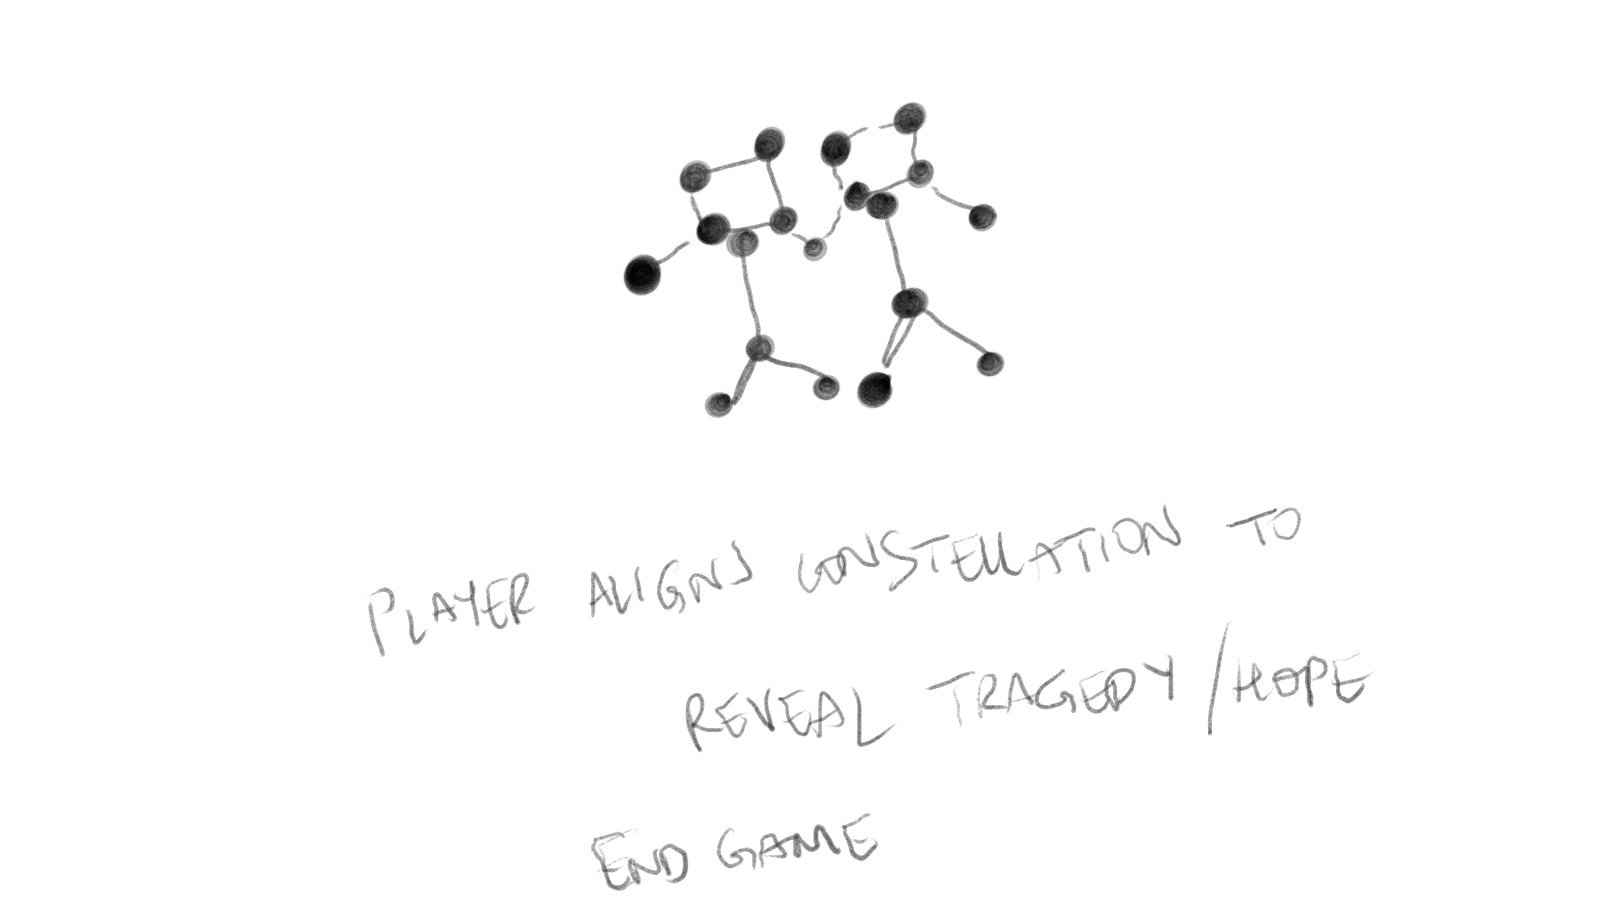 PLAYER ALIGNS CONSTELLATION TO
REVEAL TRAGEDY/HOPE
END GAME